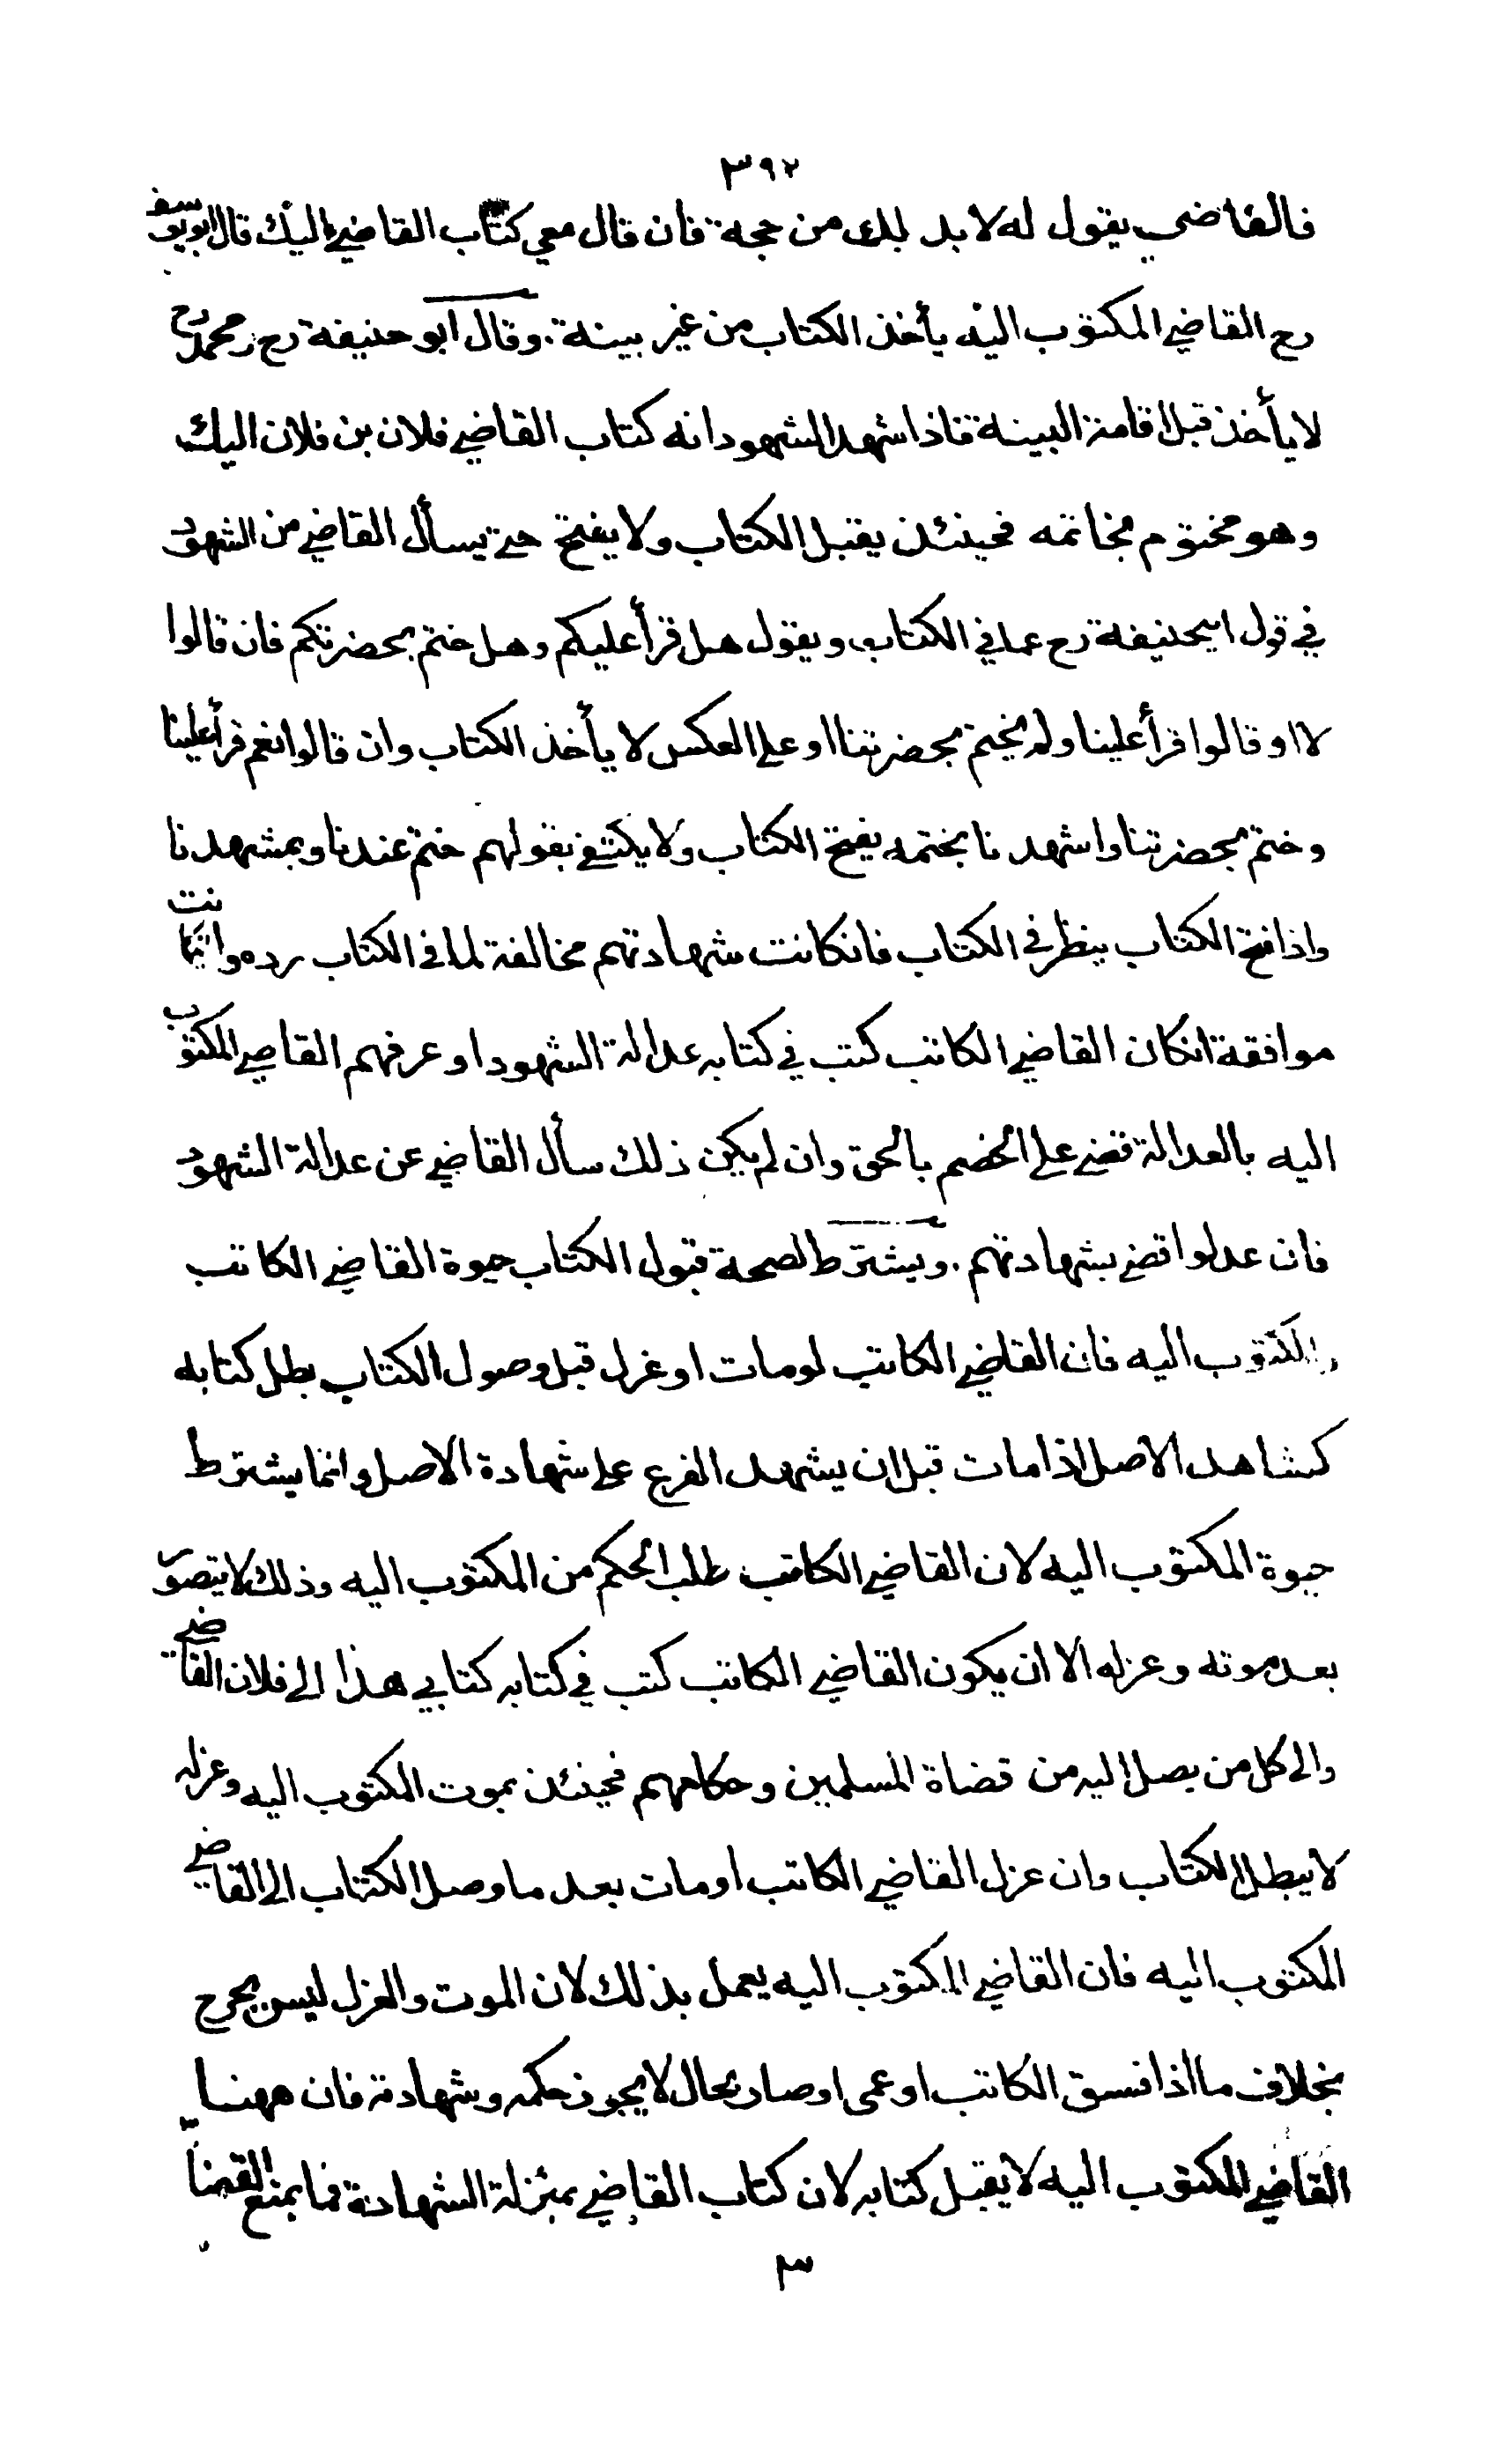 ٣٩٢
فالقاضي يقول له لا بد لك من حجة فان قال معي كتاب القاضي اليك قال ابو يوسف
رح القاضي المكتوب اليه يأخذ الكتاب من غير بينة . وقال ابو حنيفة رح ومحمد رح
لا يأخذ قبل اقامة البينة فاذا شهد الشهود انه كتاب القاضي فلان بن فلان اليك
وهو مختوم بخاتمه فحينئذ يقبل الكتاب ولا يفتح حتى يسأل القاضي من الشهود
في قول ابيحنيفة رح عما في الكتاب ويقول هل قرأ عليكم وهل ختم بحضرتكم فان قالوا
لا او قالوا قرأ علينا ولم يختم بحضرتنا او على العكس لا يأخذ الكتاب وان قالوا نعم قرأ علينا
وختم بحضرتنا واشهدنا بختمه يفتح الكتاب ولا يكتفى بقولهم ختم عندنا وبمشهدنا
واذا فتح الكتاب ينظر في الكتاب فانكانت شهادتهم مخالفة لما في الكتاب رده وانكانت
موافقة انكان القاضي الكاتب كتب في كتابه عدالة الشهود او عرفهم القاضي المكتوب
اليه بالعدالة قضى على الخصم بالحق وان لم يكن ذلك سأل القاضي عن عدالة الشهود
فان عدلوا قضى بشهادتهم . ويشترط لصحة قبول الكتاب حيوة القاضي الكاتب
والمكتوب اليه فان القاضي الكاتب لومات او عزل قبل وصول الكتاب بطل كتابه
كشاهد الاصل اذا مات قبل ان يشهد الفرع على شهادة الاصل وانما يشترط
حيوة المكتوب اليه لان القاضي الكاتب طلب الحكم من المكتوب اليه وذلك لا يتصور
بعد موته وعزله الا ان يكون القاضي الكاتب كتب في كتابه كتابي هذا الى فلان القاضي
والى كل من يصل اليه من قضاة المسلمين وحكامهم فحينئذ بموت المكتوب اليه وعزله
لا يبطل الكتاب وان عزل القاضي الكاتب او مات بعد ما وصل الكتاب الى القاضي
المكتوب اليه فان القاضي المكتوب اليه يعمل بذلك لان الموت والعزل ليس بجرح
بخلاف ما اذا فسق الكاتب او عمى او صار بحال لا يجوز حكمه وشهادته فان ههنا
القاضي المكتوب اليه لا يقبل كتابه لان كتاب القاضي بمنزلة الشهادة فما يمنع القضاء
٣